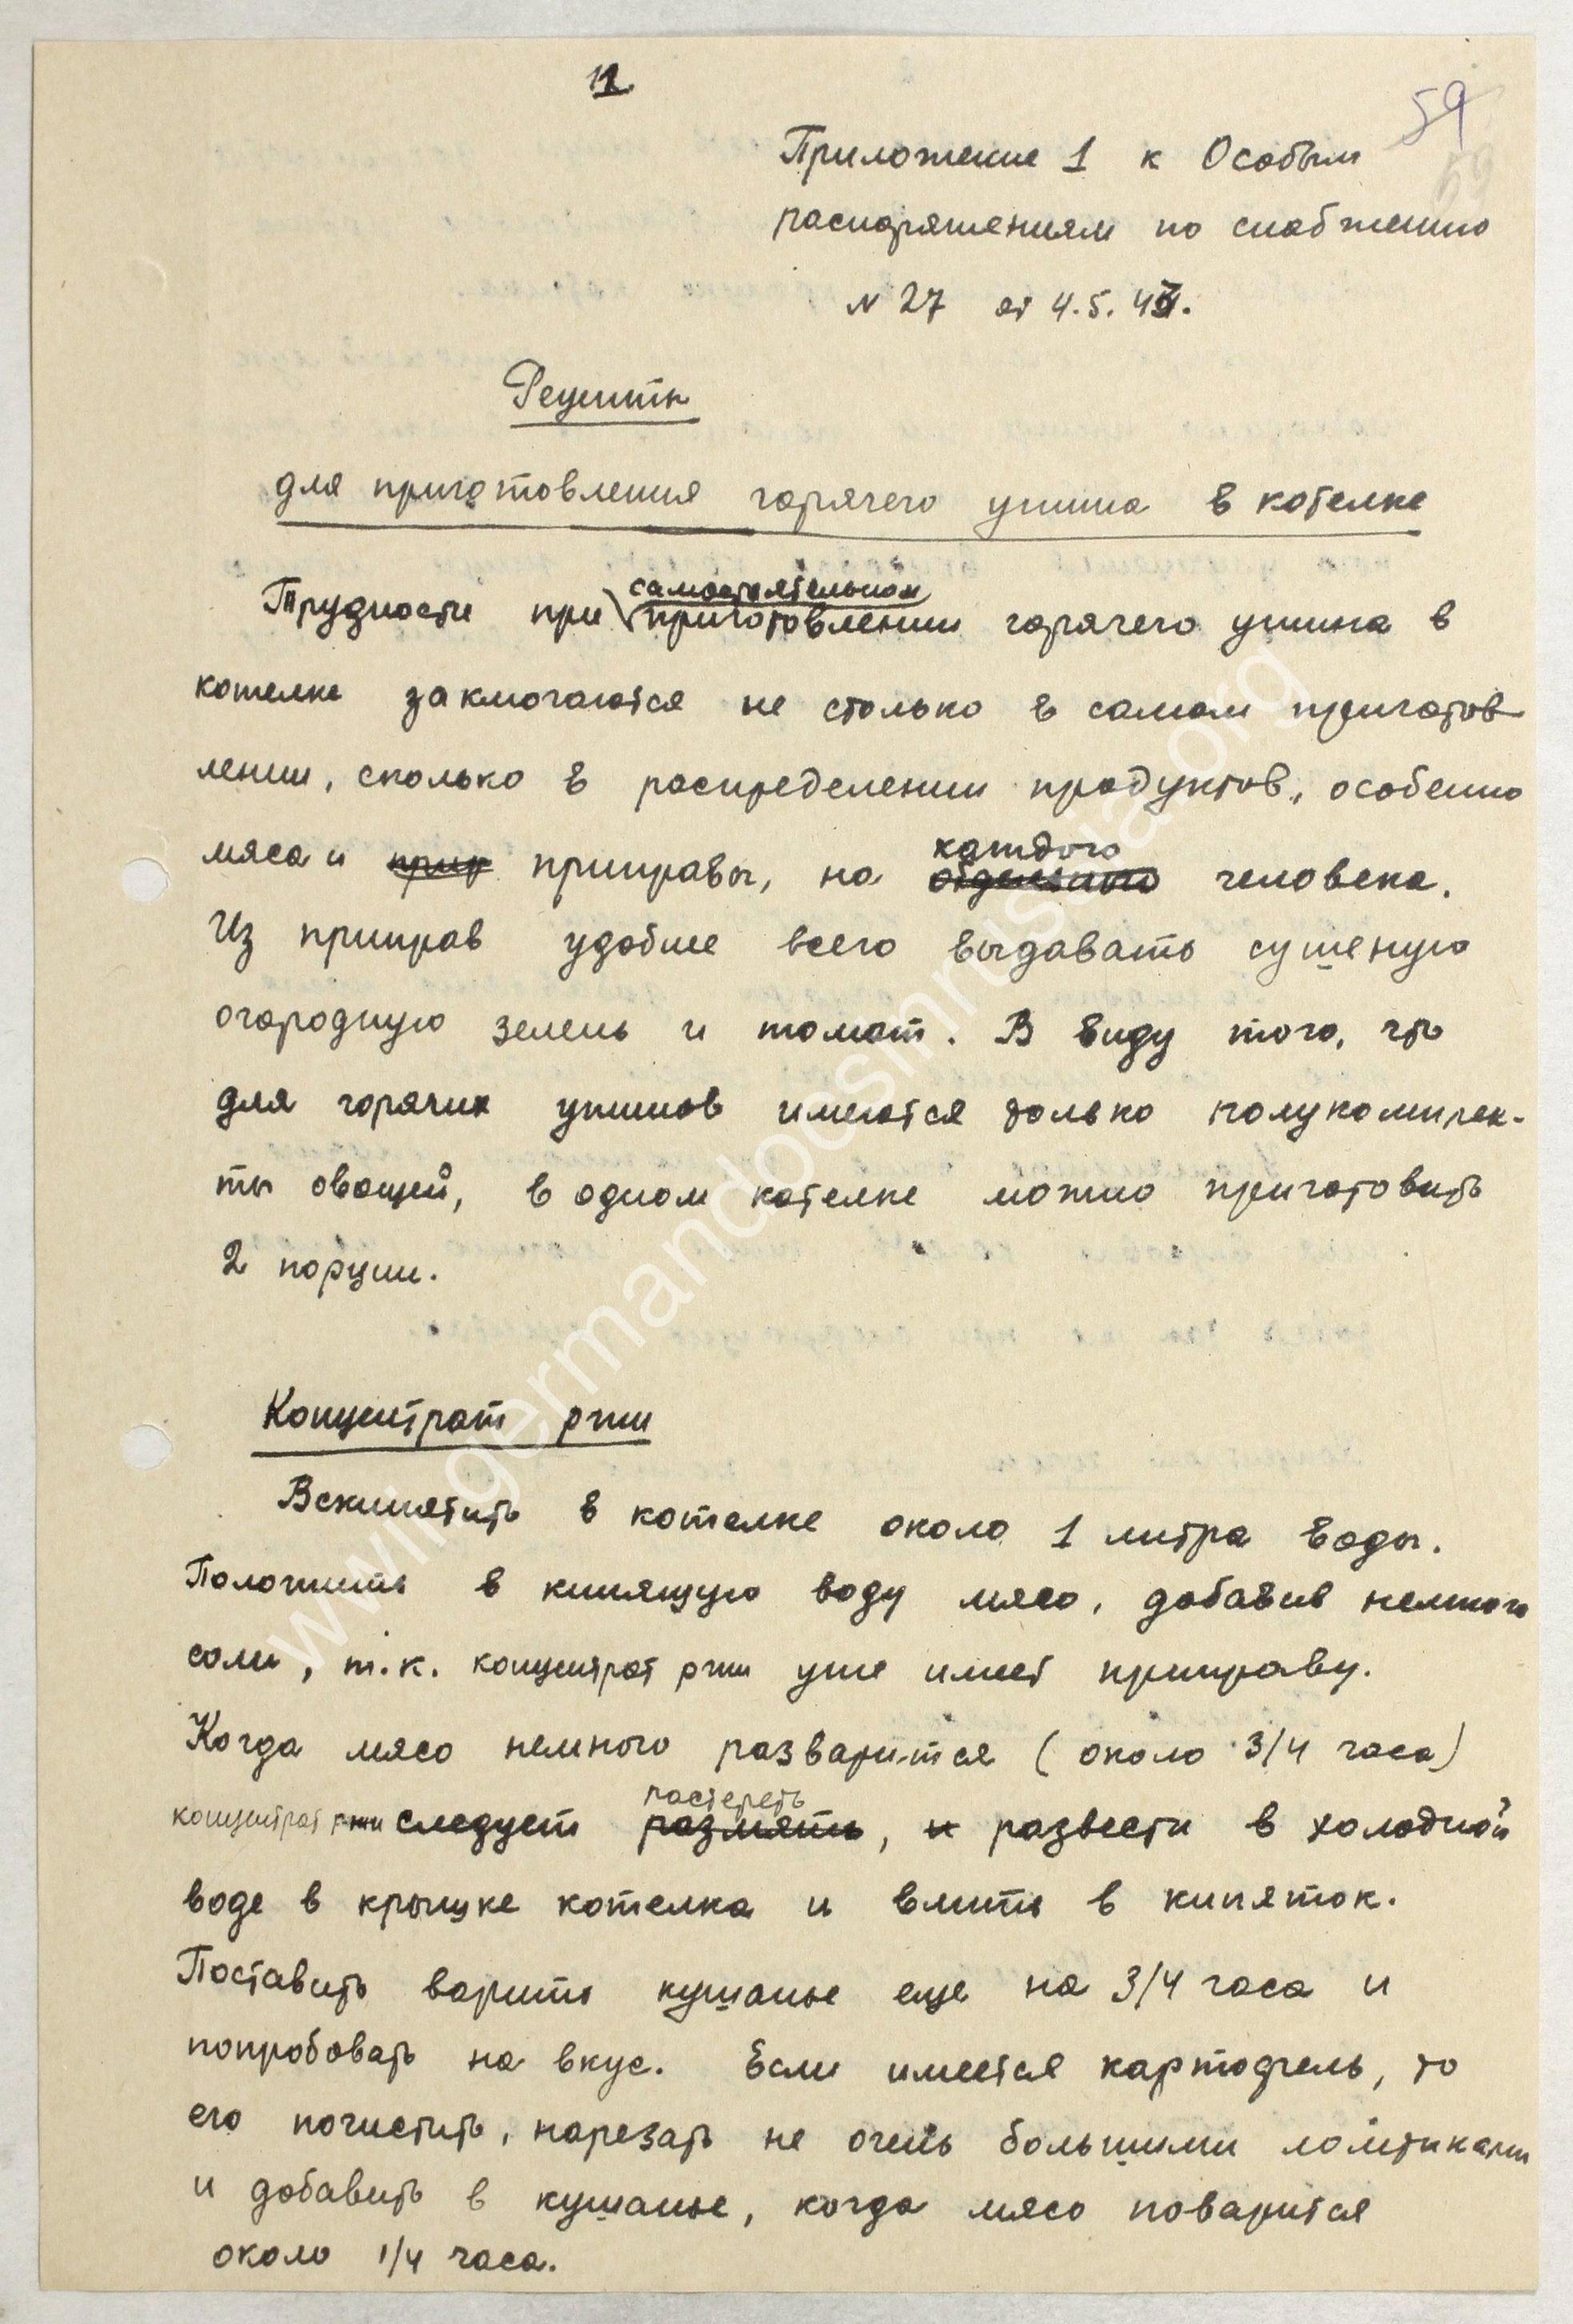 11
59
59
Приложение 1 к Особым
распоряжениям по снабжению
N 27 от 4.5.43.
Рецепты
для приготовления горячего ужина в котелке
самостоятельном
Трудности при приготовлении горячего ужина в
котелке заключаются не столько в самом приготов-
лении, сколько в распределении продуктов, особенно
каждого
мяса и прир приправы, на отдельного человека.
Из приправ удобнее всего выдавать сушеную
огородную зелень и томат. В виду того, что
для горячих ужинов имеются только полукомпрек-
ты овощей, в одном котелке можно приготовить
2 порции.
Концентрат ржи
Вскипятить в котелке около 1 литра воды.
Положить в кипящую воду мясо, добавив немного
соли, т.к. концентрат ржи уже имеет приправу.
Когда мясо немного разварится (около 3/4 часа)
растереть
концентрат ржи следует размять, и развести в холодной
воде в крышке котелка и влить в кипяток.
Поставить варить кушанье еще на 3/4 часа и
попробовать на вкус. Если имеется картофель, то
его почистить, нарезать не очень большими ломтиками
и добавить в кушанье, когда мясо поварится
около 1/4 часа.
wwii.germandocsinrussia.org